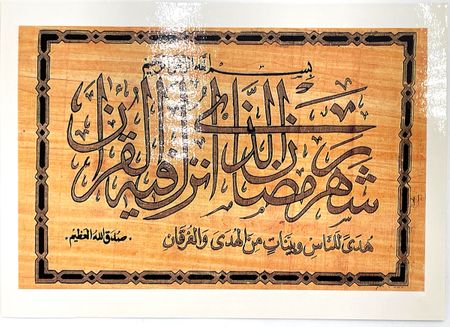 بسم الله الرحمن الرحيم
شهر رمضان الذي أنزل فيه القرآن
هُدىً للنَّاس وبيّنات مِنَ الهُدى وَالفُرقان
صدق الله العظيم